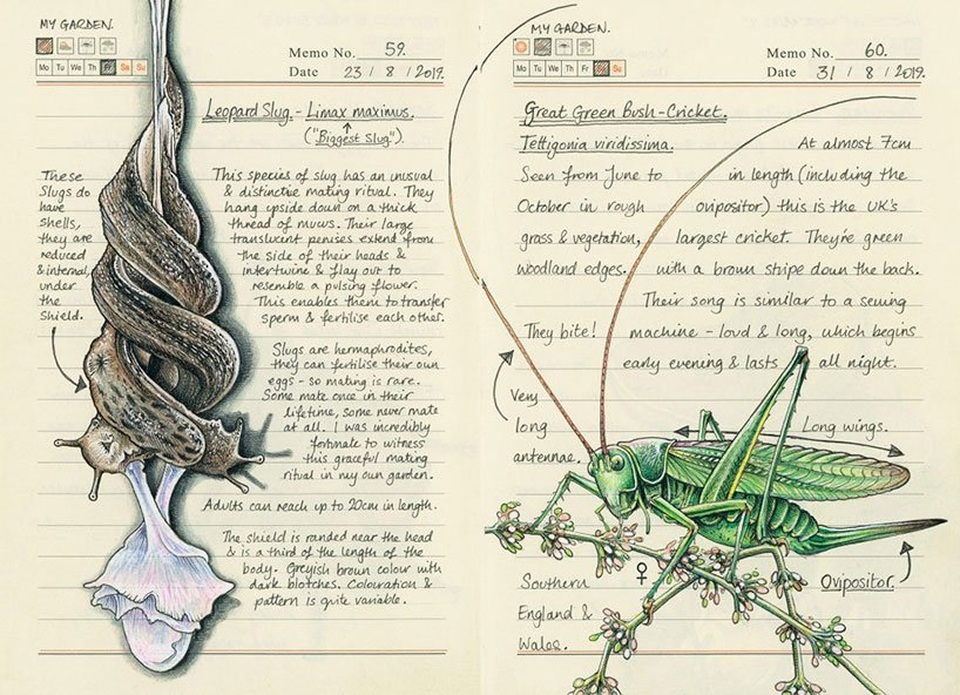 MY GARDEN.
Mo Tu We Th Fr Sa Su
Memo No. 59.
Date 23 / 8 / 2019.
Leopard Slug. - Limax maximus.
("Biggest Slug").
These
Slugs do
have
shells,
they are
reduced
& internal,
under
the
shield.
This species of slug has an unusual
& distinctive mating ritual. They
hang upside down on a thick
thread of mucus. Their large
translucent penises extend from
the side of their heads &
intertwine & flay out to
resemble a pulsing flower.
This enables them to transfer
sperm & fertilise each other.
Slugs are hermaphrodites,
they can fertilise their own
eggs - so mating is rare.
Some mate once in their
lifetime, some never mate
at all. I was incredibly
fortunate to witness
this graceful mating
ritual in my own garden.
Adults can reach up to 20cm in length.
The shield is randed near the head
& is a third of the length of the
body. Greyish brown colour with
dark blotches. Colouration &
pattern is quite variable.
MY GARDEN.
Mo Tu We Th Fr Sa Su
Memo No. 60.
Date 31 / 8 / 2019.
Great Green Bush-Cricket.
Tettigonia viridissima.
Seen from June to
October in rough
grass & vegetation,
woodland edges.
At almost 7cm
in length (including the
ovipositor) this is the UK's
largest cricket. They're green
with a brown stripe down the back.
Their song is similar to a sewing
machine - loud & long, which begins
early evening & lasts all night.
They bite!
Very
long
antennae.
Long wings.
♀
Ovipositor.
Southern
England &
Wales.